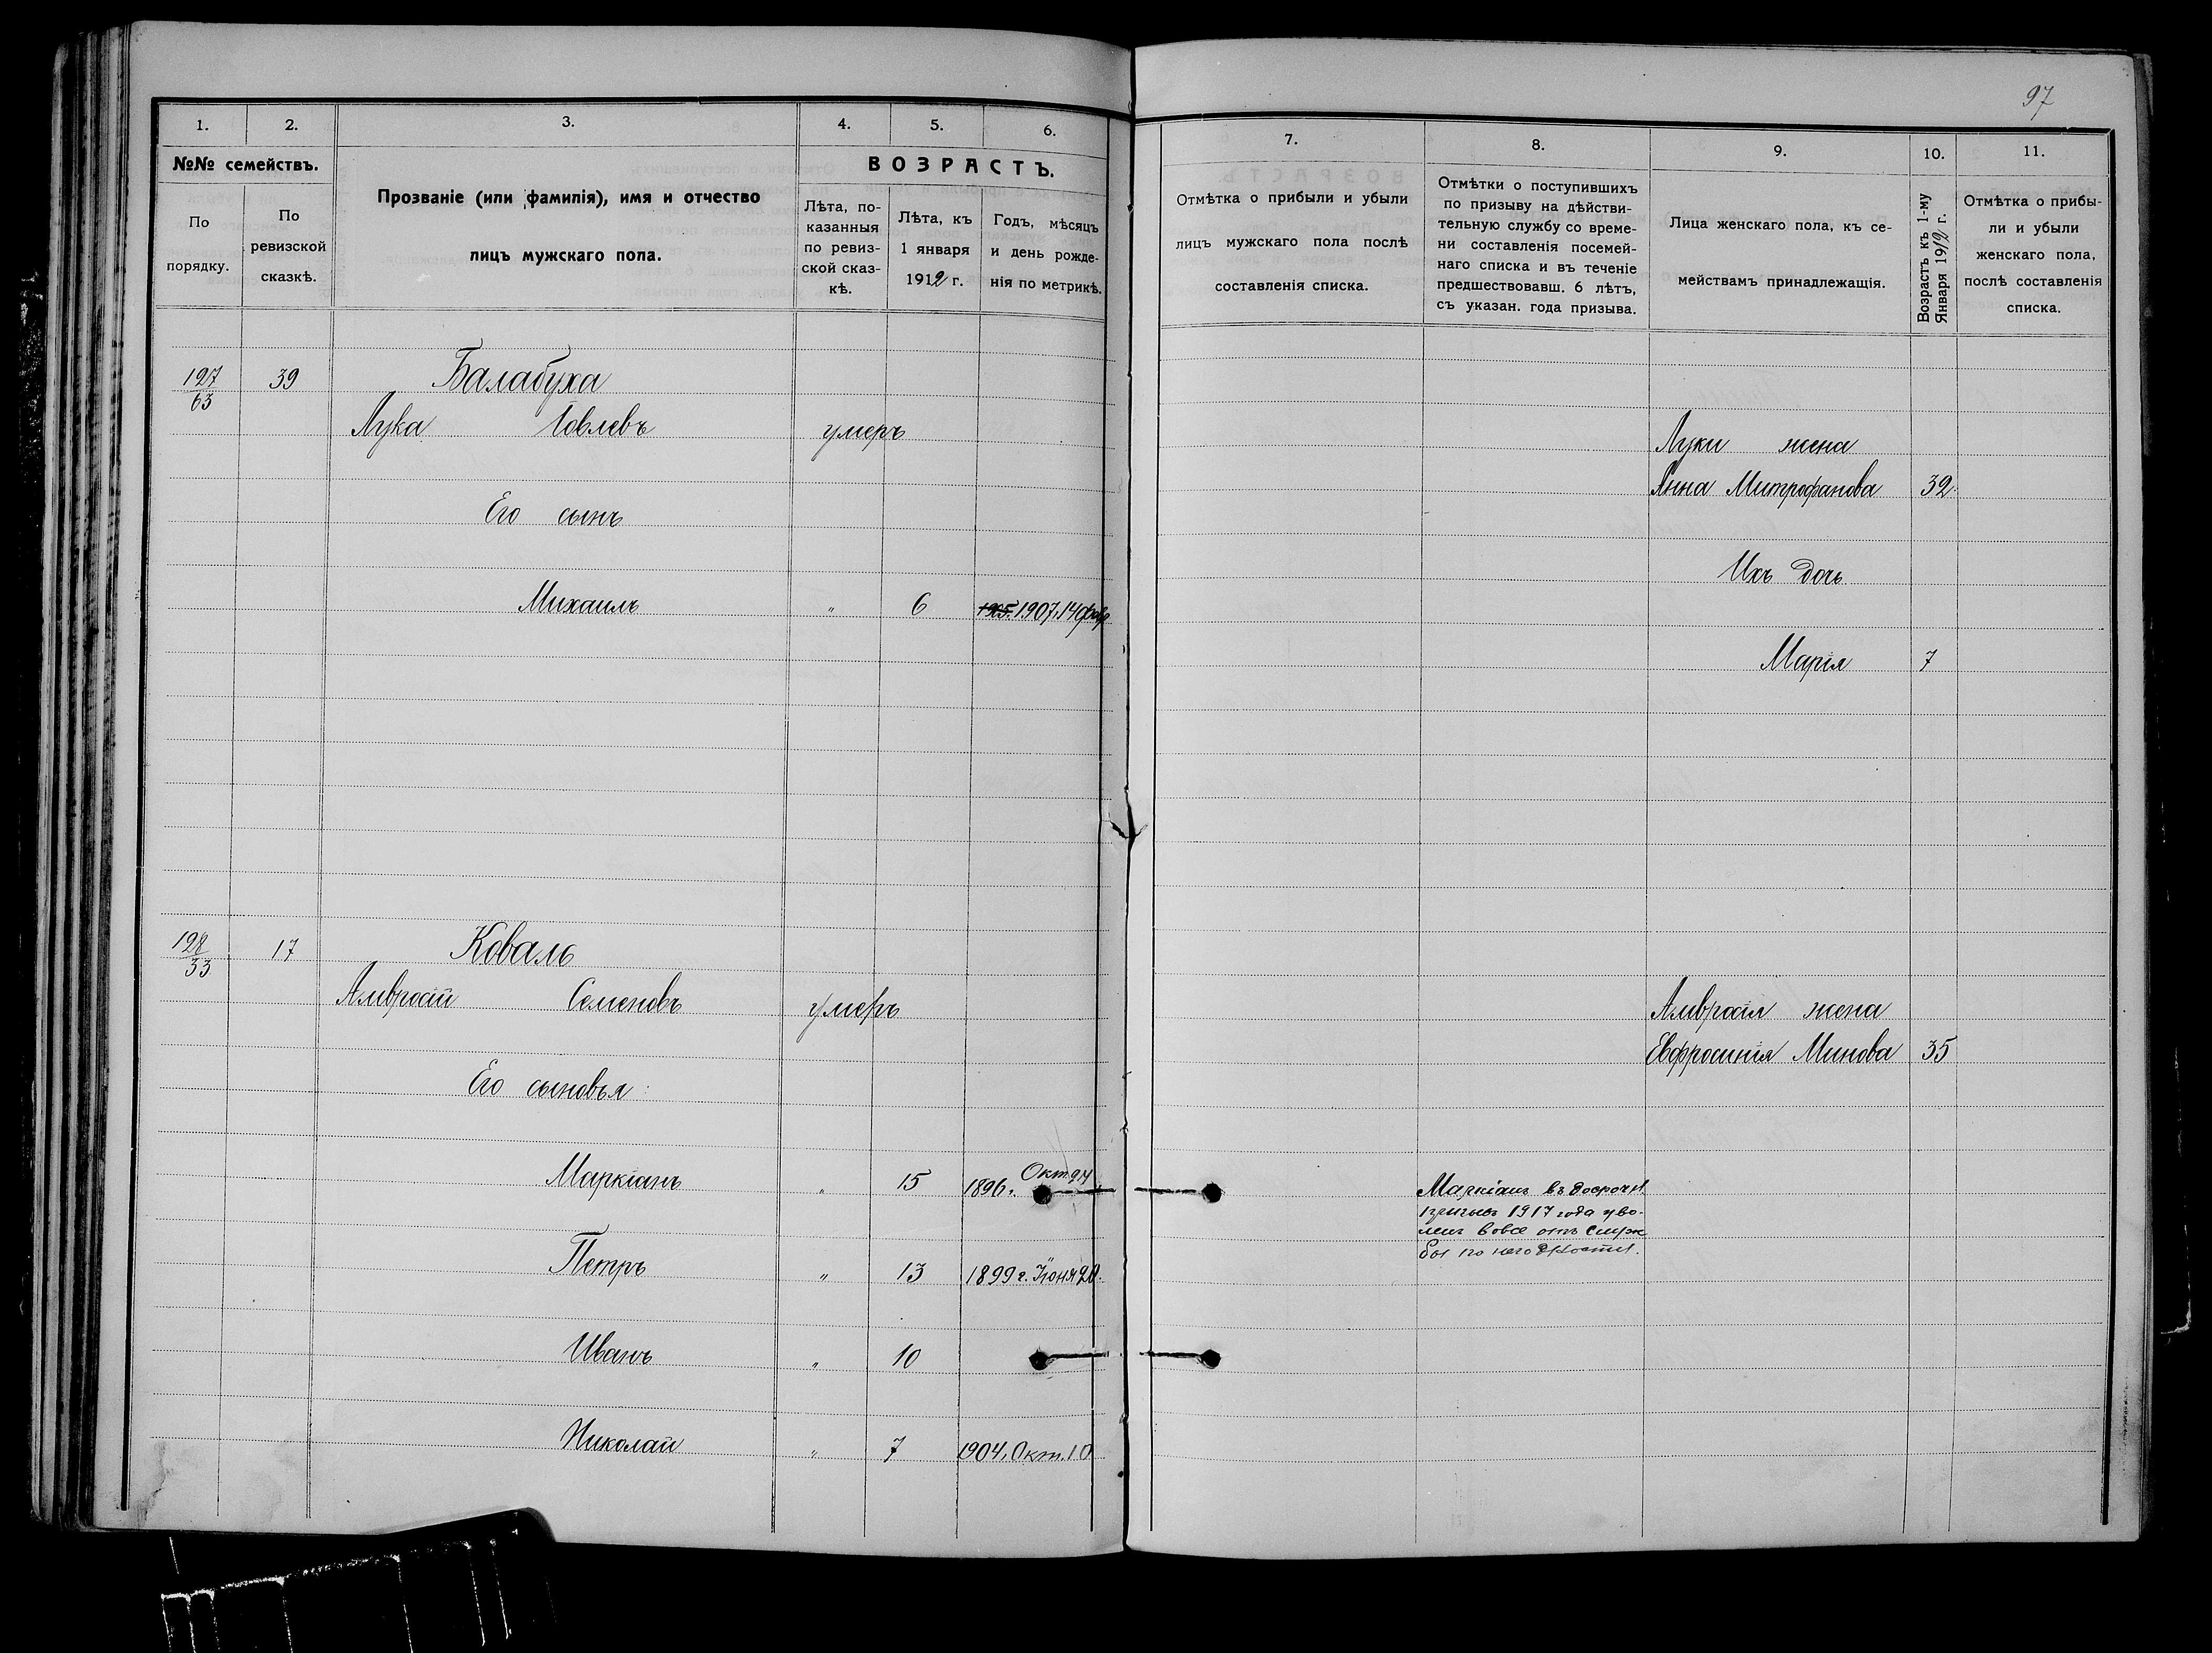 97
1.
2.
3.
4.
5.
6.
№№ семействъ.
По порядку.
По ревизской сказкѣ.
Прозваніе (или фамилія), имя и отчество
лицъ мужскаго пола.
ВОЗРАСТЪ.
Лѣта, по-
казанныя
по ревиз-
ской сказ-
кѣ.
Лѣта, къ
1 января
1912 г.
Годъ, мѣсяцъ
и день рожде-
нія по метрикѣ.
127
63
39
Балабуха
Лука Іовлевъ умеръ
Его сынъ
Михаилъ " 6 1905. 1907. 14 февр
128
33
17
Коваль
Амвросій Семеновъ умеръ
Его сыновья:
Маркіанъ " 15 1896 г. Окт. 24
Петръ " 13 1899 г. Іюня 20.
Иванъ " 10
Николай " 7 1904, Окт. 10
7.
8.
9.
10.
11.
Отмѣтка о прибыли и убыли
лицъ мужскаго пола послѣ
составленія списка.
Отмѣтки о поступившихъ
по призыву на дѣйстви-
тельную службу со време-
ни составленія посемей-
наго списка и въ теченіе
предшествовавш. 6 лѣтъ,
съ указан. года призыва.
Лица женскаго пола, къ се-
мействамъ принадлежащія.
Возрастъ къ 1-му
Января 1912 г.
Отмѣтка о прибы-
ли и убыли
женскаго пола,
послѣ составленія
списка.
Луки жена
Анна Митрофанова 32
Ихъ дочь
Марія 7
Амвросія жена
Евфросинія Минова 35
Маркіанъ въ досрочн.
призывъ 1917 года уво-
ленъ вовсе отъ служ
бы по негодности.